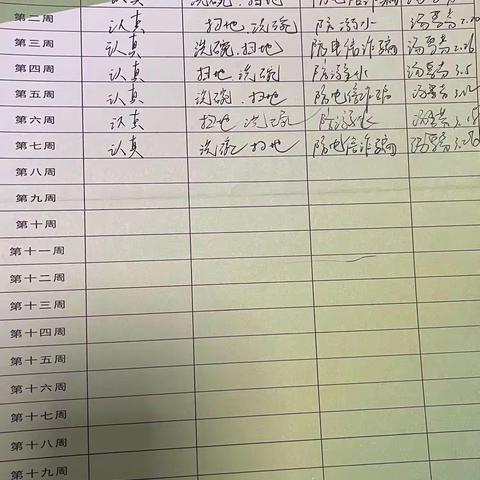 第二周 认真 扫地、洗碗 防溺水
第三周 认真 洗碗、扫地 防电信诈骗 2.26
第四周 认真 扫地、洗碗 防溺水 3.5
第五周 认真 洗碗、扫地 防电信诈骗 3.12
第六周 认真 扫地、洗碗 防溺水
第七周 认真 洗碗、扫地 防电信诈骗 3.26
第八周
第九周
第十周
第十一周
第十二周
第十三周
第十四周
第十五周
第十六周
第十七周
第十八周
第十九周